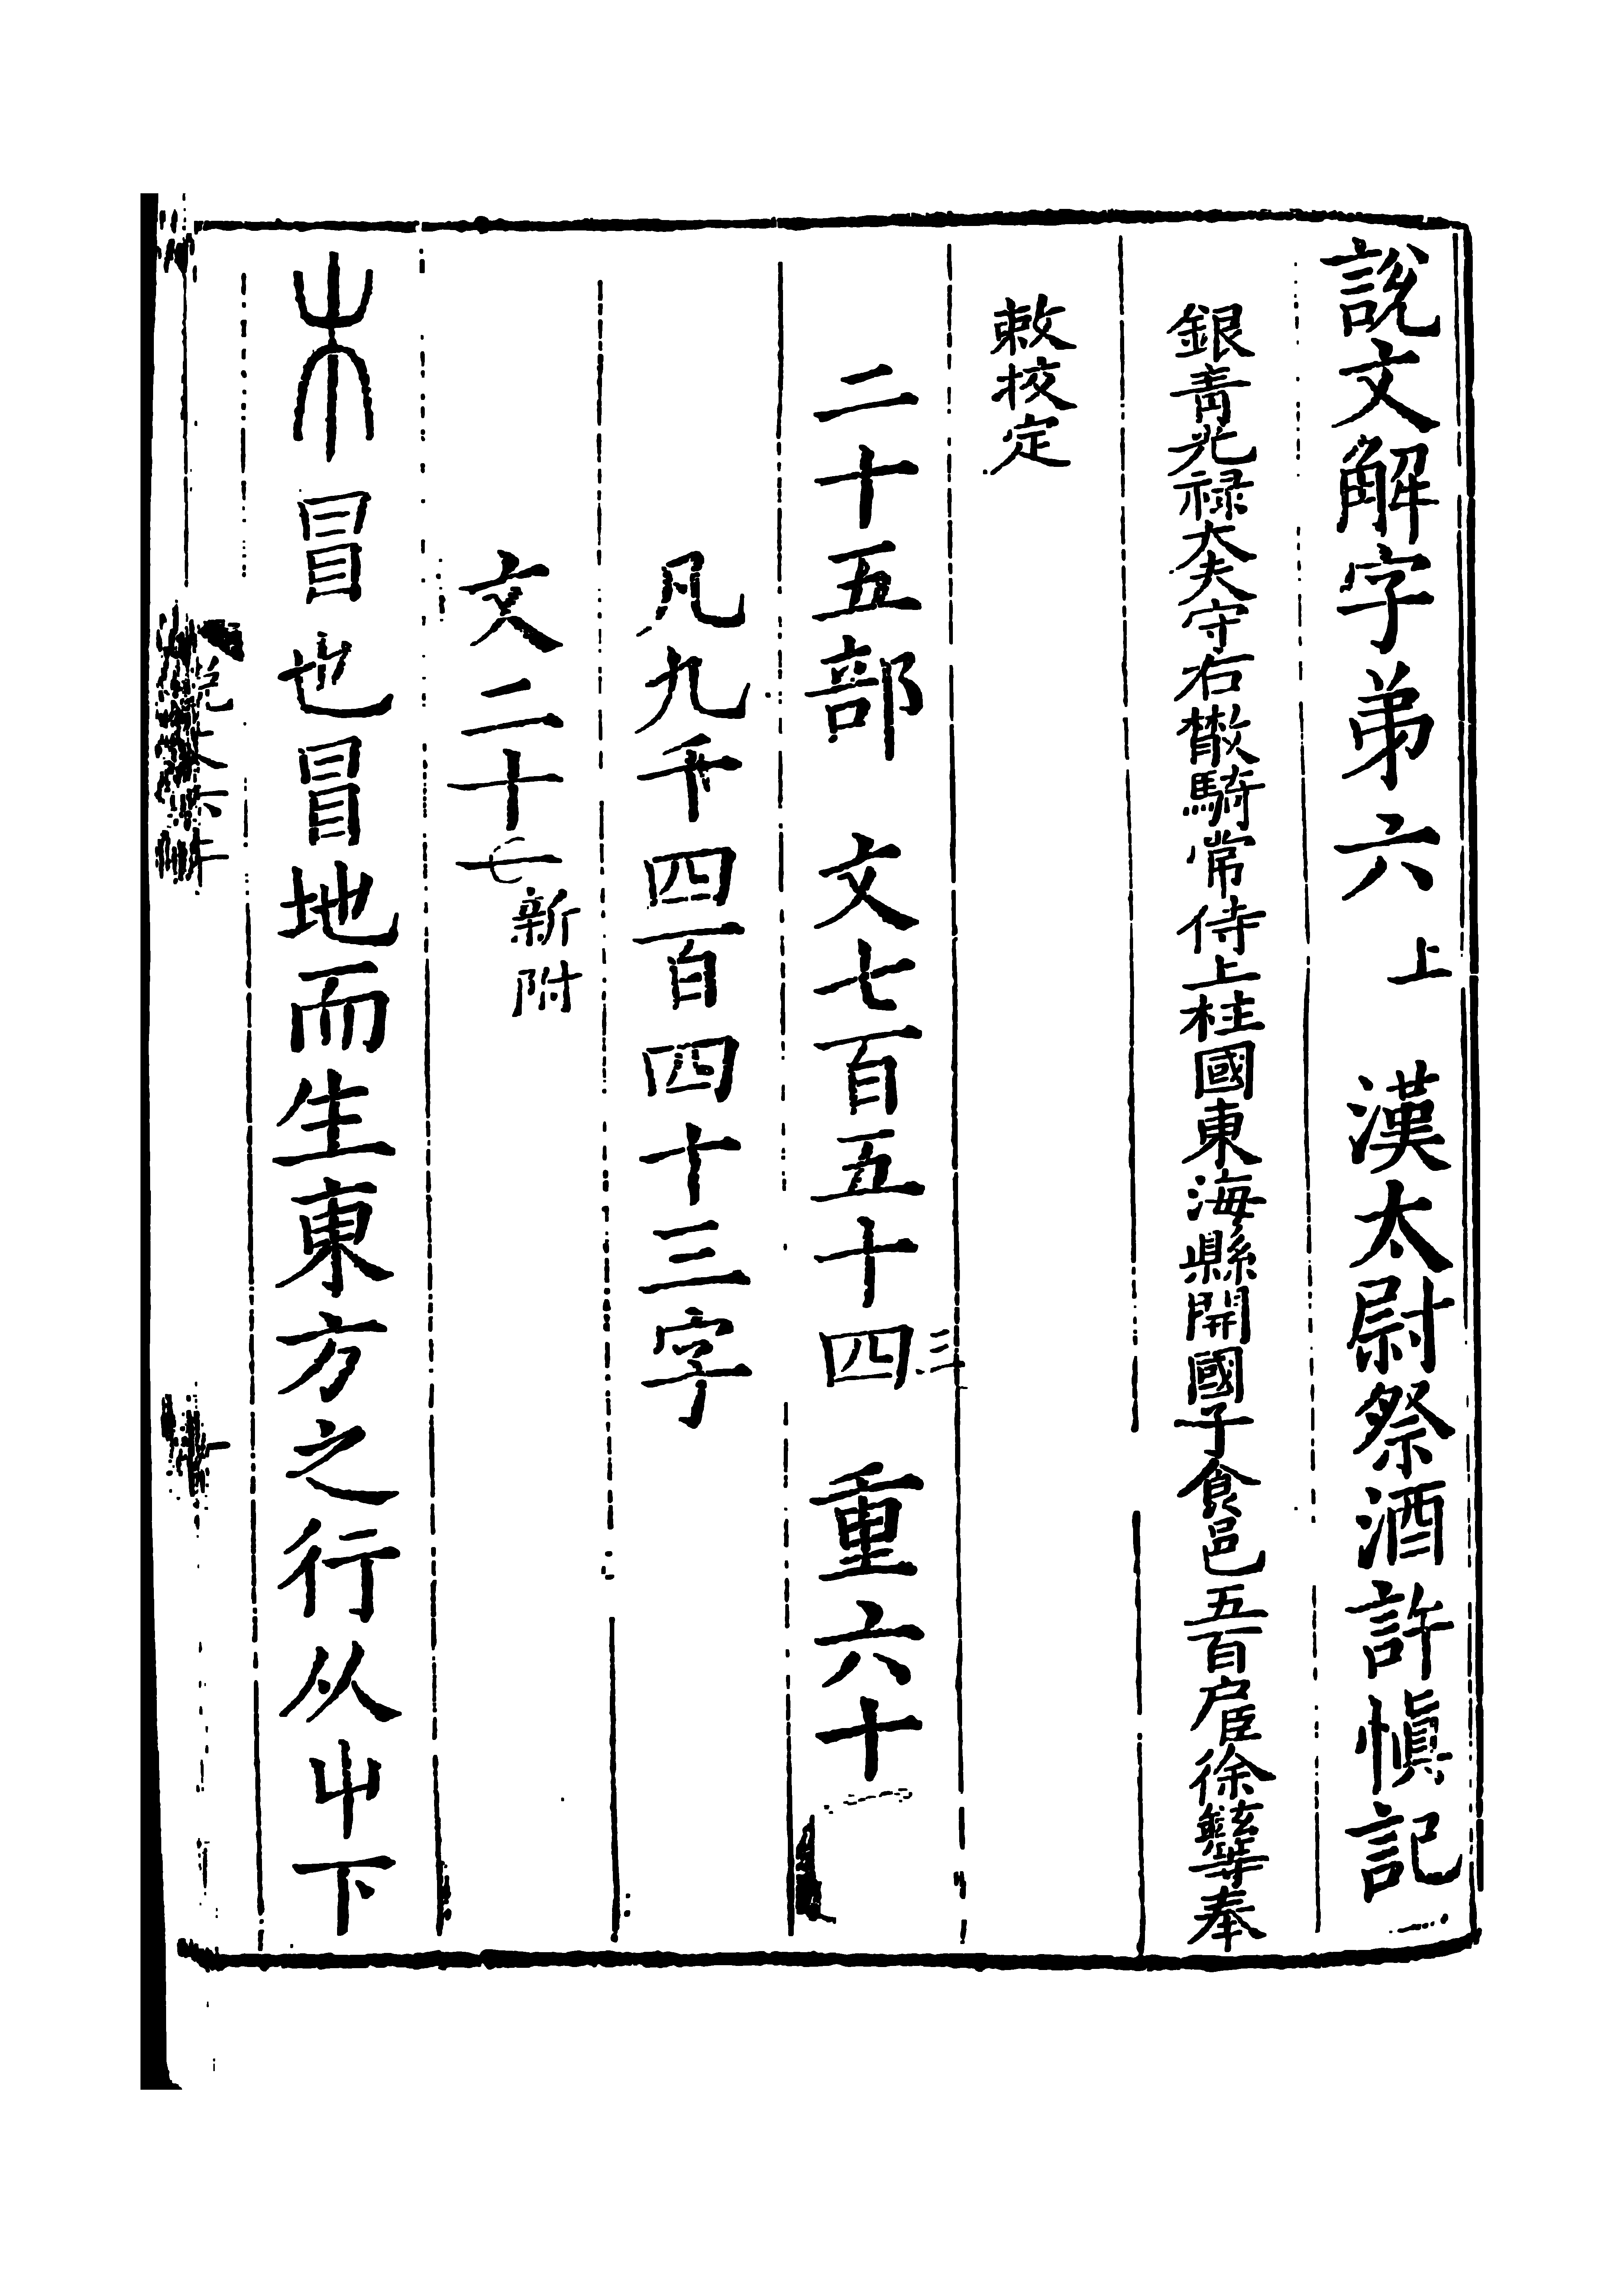 說文解字弟六 上 漢太尉祭酒許慎記
銀青光禄大夫守右散騎常侍上柱國東海縣開國子食邑五百户臣徐鉉等奉
敕挍定
二十五部 文七百五十四 重六十
三
凡九千四百四十三字
文二十一 新附
木 冒也冒地而生東方之行从屮下